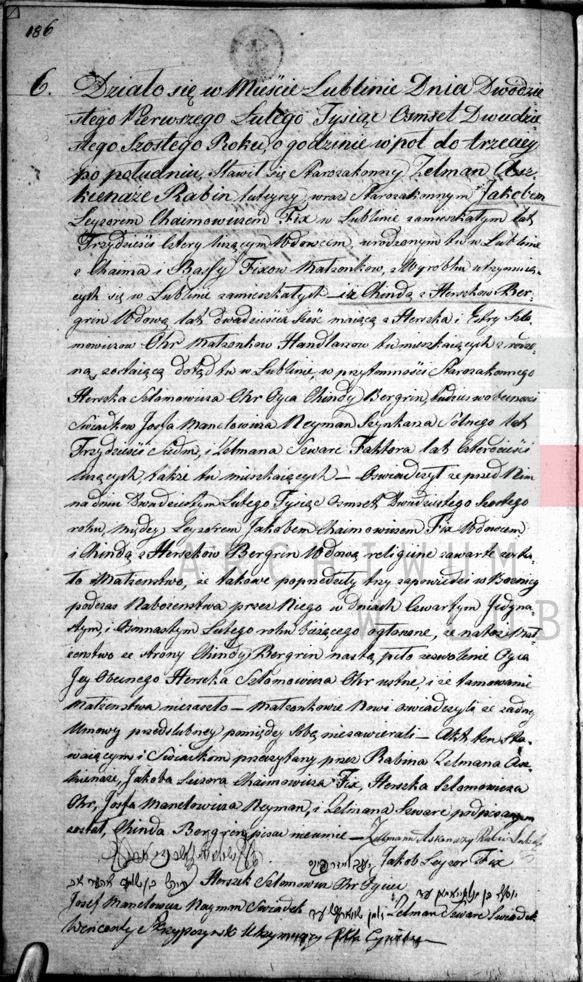 186
6. Działo się w Mieście Lublinie Dnia Dwódzie
stego Pierwszego Lutego Tysiąc Osmset Dwudzie
stego Szostego Roku, o godzinie w poł do trzeciey
po południu, Stawił się Starozakonny Zelman Asz-
kienaze Rabin tuteyszy, wraz Starozakonnym Jakobem
Leyzorem Chaimowiczem Fix w Lublinie zamieszkałym lat
Trzydzieści Cztery liczącym Wdowcem, urodzonym tu w Lublinie
z Chaima i Bassy Fixow Małżonkow, z Wyrobku utrzymuią-
cych się w Lublinie zamieszkałych – iż Chindą z Herszkow Ber-
grin Wdową lat dwadzieścia Sześć maiącą z Herszka i Estry Szlo-
mowiczow Ohr Małżonkow Handlarzow tu mieszkaiących z rodzo-
ną zostaiącą dotąd tu w Lublinie w przytomności Starozakonnego
Herszka Szlomowicza Ohr Oyca Chindy Bergrin, tudzież w obecności
Swiadkow Josfa Manelowicza Neyman Szynkarza Solnego lat
Trzydzieści Siedm, i Zelmana Szwarc Faktora lat Czterdzieści
liczących także tu mieszkaiących – Oswiadczył ze przed Nim
na dniu Dwudziestym Lutego Tysiąc Osmset Dwudziestego Szostego
roku między Leyzorem Jakobem Chaimowiczem Fix Wdowcem
i Chindą z Herszkow Bergrin Wdową religiine zawarte zosta-
ło Małżenstwo, ze takowe poprzedziły trzy zapowiedzi w Boznicy
podczas Nabozenstwa przez Niego w dniach Czwartym Jedyna-
stym, i Osmnastym Lutego roku bieżącego ogłoszone, ze na toż Mał-
żenstwo ze strony Chindy Bergrin nastąpiło zezwolenie Oyca
Jey Obecnego Herszka Szlomowicza Ohr ustne, i ze tamowanie
Małżenstwa niezaszło – Małżonkowie Nowi oswiadczyli ze zadney
Umowy przedslubney pomiędzy sobą niezawierali – Akt ten sta-
waiącym i Swiadkom przeczytany przez Rabina Zelmana Asz-
kienaze, Jakoba Leizora Chaimowicza Fix, Herszka Szlomowicza
Ohr, Josfa Manelowicza Neyman, i Zelmana Szwarc podpisanym
został, Chinda Bergrin pisac nieumie –
Jakob Leyzor Fix
Herszek Szlomowicz Ohr Oyciec
Josef Manelowicz Nayman Swiadek
Zelman Szwarc Swiadek
ARCHIWUM
W LUB